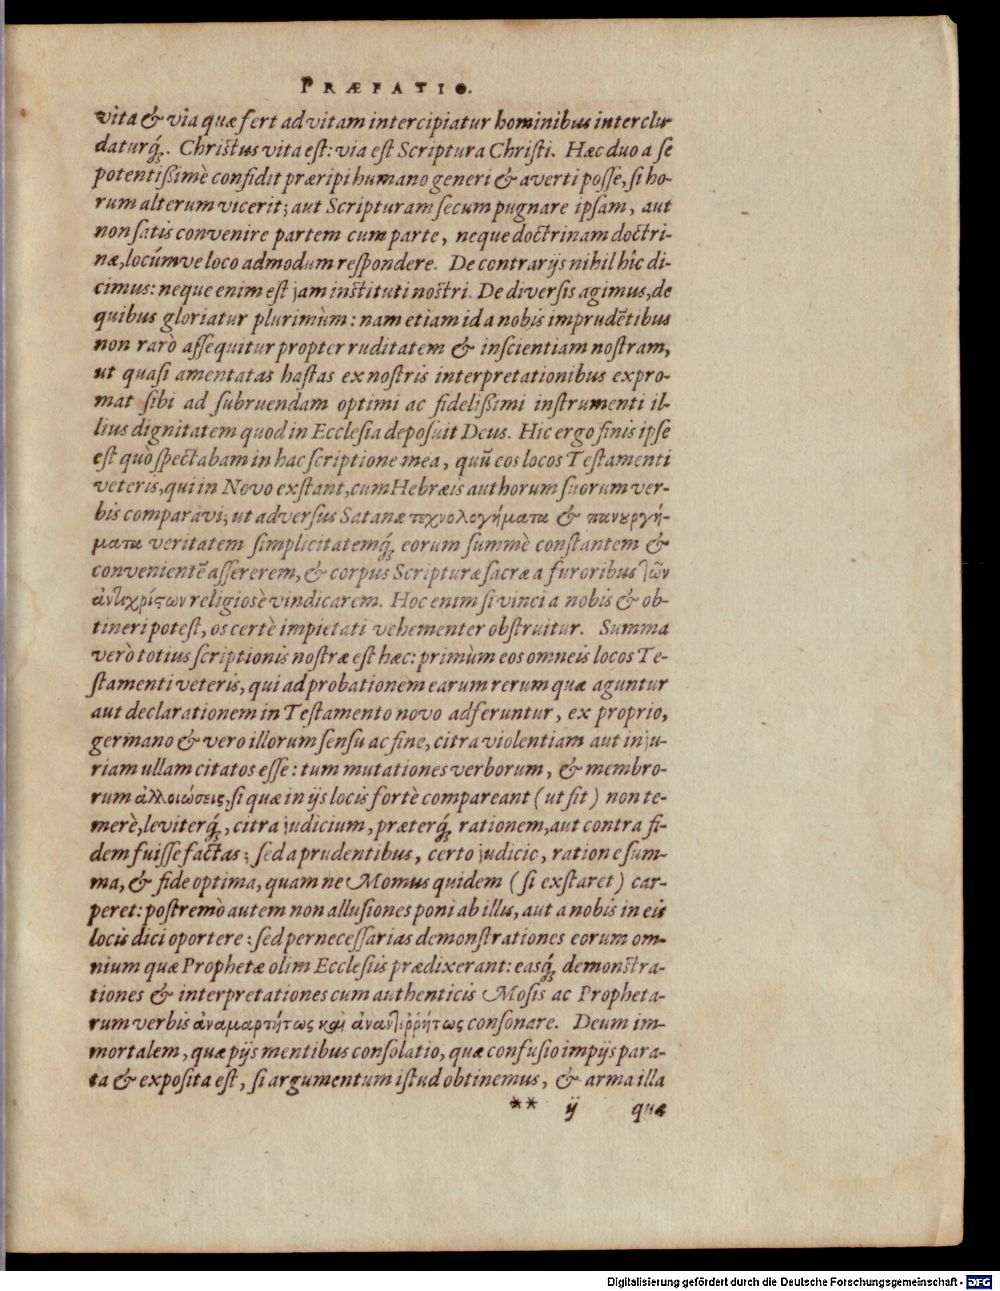 PRÆFATIO.
vita & via quæ fert ad vitam intercipiatur hominibus interclu-
daturq́;. Christus vita est: via est Scriptura Christi. Hæc duo a se
potentißimè confidit præripi humano generi & averti posse, si ho-
rum alterum vicerit; aut Scripturam secum pugnare ipsam, aut
non satis convenire partem cum parte, neque doctrinam doctri-
næ, locúmve loco admodum respondere. De contrarijs nihil hîc di-
cimus: neque enim est jam instituti nostri. De diversis agimus, de
quibus gloriatur plurimùm: nam etiam id a nobis imprudẽtibus
non rarò assequitur propter ruditatem & inscientiam nostram,
ut quasi amentatas hastas ex nostris interpretationibus expro-
mat sibi ad subruendam optimi ac fidelißimi instrumenti il-
lius dignitatem quod in Ecclesia deposuit Deus. Hic ergo finis ipse
est quò spectabam in hac scriptione mea, quũ eos locos Testamenti
veteris, qui in Novo exstant, cum Hebræis authorum suorum ver-
bis comparavi; ut adversus Satanæ τεχνολογήματα & πανουργή-
ματα veritatem simplicitatemq́; eorum summè constantem &
convenientẽ assererem, & corpus Scripturæ sacræ a furoribus τῶν
ἀντιχρίστων religiosè vindicarem. Hoc enim si vinci a nobis & ob-
tineri potest, os certè impietati vehementer obstruitur. Summa
verò totius scriptionis nostræ est hæc: primùm eos omneis locos Te-
stamenti veteris, qui ad probationem earum rerum quæ aguntur
aut declarationem in Testamento novo adferuntur, ex proprio,
germano & vero illorum sensu ac fine, citra violentiam aut inju-
riam ullam citatos esse: tum mutationes verborum, & membro-
rum ἀλλοιώσεις, si quæ in ijs locis fortè compareant (ut fit) non te-
merè, leviterq́;, citra judicium, præterq́; rationem, aut contra fi-
dem fuisse factas; sed a prudentibus, certo judicio, ratione sum-
ma, & fide optima, quam ne Momus quidem (si exstaret) car-
peret: postremò autem non allusiones poni ab illis, aut a nobis in eis
locis dici oportere: sed pernecessarias demonstrationes eorum om-
nium quæ Prophetæ olim Ecclesiis prædixerant: easq́; demonstra-
tiones & interpretationes cum authenticis Mosis ac Propheta-
rum verbis ἀναμαρτήτως καὶ ἀναντιῤῥήτως consonare. Deum im-
mortalem, quæ pijs mentibus consolatio, quæ confusio impijs para-
ta & exposita est, si argumentum istud obtinemus, & arma illa
** ij quæ
Digitalisierung gefördert durch die Deutsche Forschungsgemeinschaft - DFG